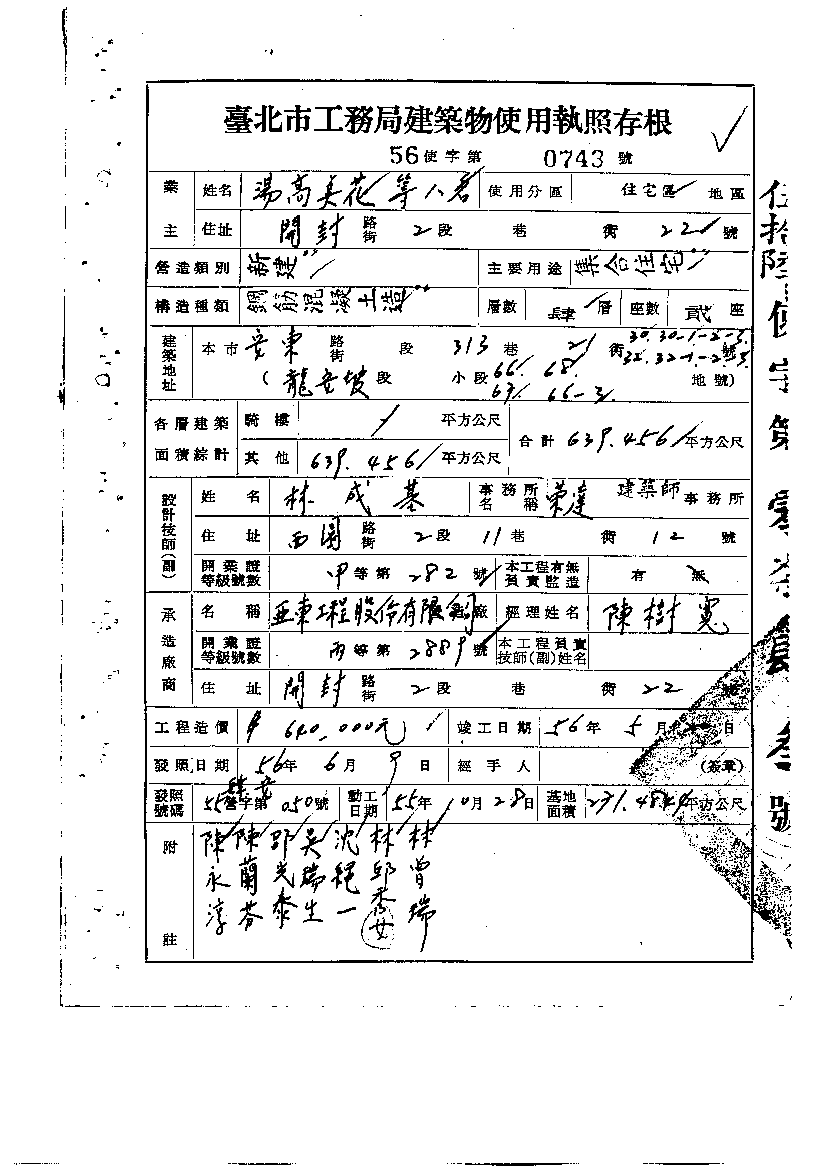 臺北市工務局建築物使用執照存根
56使字第 0743 號
業主 姓名 湯高美花等八名 使用分區 住宅區 地區
住址 開封路街2段 巷 衖 22 號
營造類別 新建 主要用途 集合住宅
構造種類 鋼筋混凝土造 層數 肆層 座數 貳座
建築地址 本市安東路街 段 313巷 21衖 30.30-1-2-3. 32.32-1-2-3 號
(龍安坡段 小段 66. 68. 67. 66-3. 地號)
各層建築面積綜計 騎樓 平方公尺 合計 639.456 平方公尺
其他 639.456 平方公尺
設計技師(副) 姓名 林成基 事務所名稱 榮達 建築師事務所
住址 西園路街2段 11巷 衖 12 號
開業證等級號數 甲等第282號 本工程有無負責監造 有 無
承造廠商 名稱 亞東工程股份有限公司 廠 經理姓名 陳樹寬
開業證等級號數 丙等第2889號 本工程負責技師(副)姓名
住址 開封路街2段 巷 衖 22 號
工程造價 640,000元 竣工日期 56年5月 日
發照日期 56年6月9日 經手人 (簽章)
發照號碼 55營字第050號 動工日期 55年10月28日 基地面積 231.484 平方公尺
附註
陳永淳
陳蘭芬
邵光泰
吳瑞生
沈純一
林邱秀女
林曾瑞
伍拾陸使字第零柒肆叁號